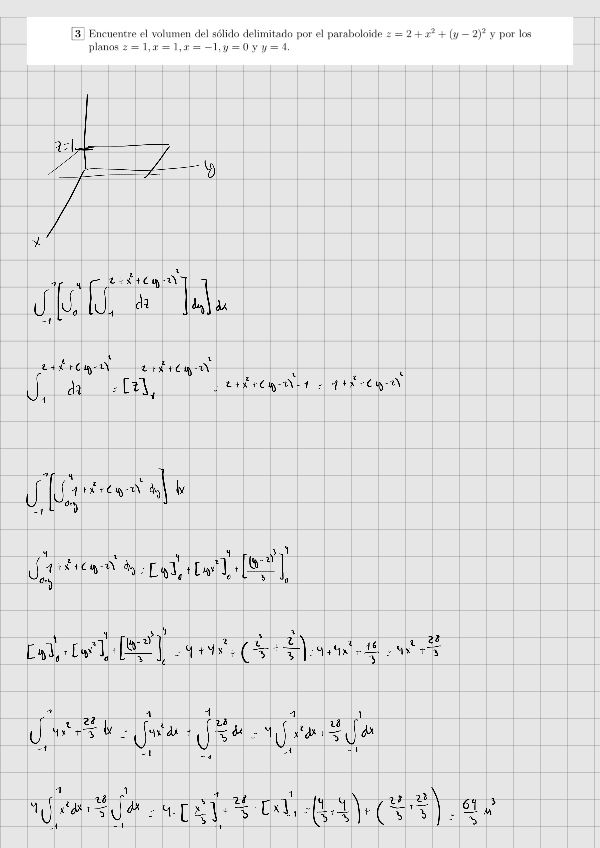 3 Encuentre el volumen del sólido delimitado por el paraboloide z = 2 + x² + (y − 2)² y por los
planos z = 1, x = 1, x = −1, y = 0 y y = 4.
z=1
y
x
∫₋₁¹ [∫₀⁴ [∫₁^(2+x²+(y-2)²) dz] dy] dx
∫₁^(2+x²+(y-2)²) dz = [z]₁^(2+x²+(y-2)²) = 2+x²+(y-2)²-1 = 1+x²+(y-2)²
∫₋₁¹ [∫₀₌y⁴ 1+x²+(y-2)² dy] dx
∫₀₌y⁴ 1+x²+(y-2)² dy = [y]₀⁴ + [yx²]₀⁴ + [(y-2)³/3]₀⁴
[y]₀⁴ + [yx²]₀⁴ + [(y-2)³/3]₀⁴ = 4+4x² + (2³/3 + 2³/3) = 4+4x²+16/3 = 4x²+28/3
∫₋₁¹ 4x²+28/3 dx = ∫₋₁¹ 4x² dx + ∫₋₁¹ 28/3 dx = 4∫₋₁¹ x² dx + 28/3 ∫₋₁¹ dx
4∫₋₁¹ x² dx + 28/3 ∫₋₁¹ dx = 4·[x³/3]₋₁¹ + 28/3·[x]₋₁¹ = (4/3+4/3) + (28/3+28/3) = 64/3 u³